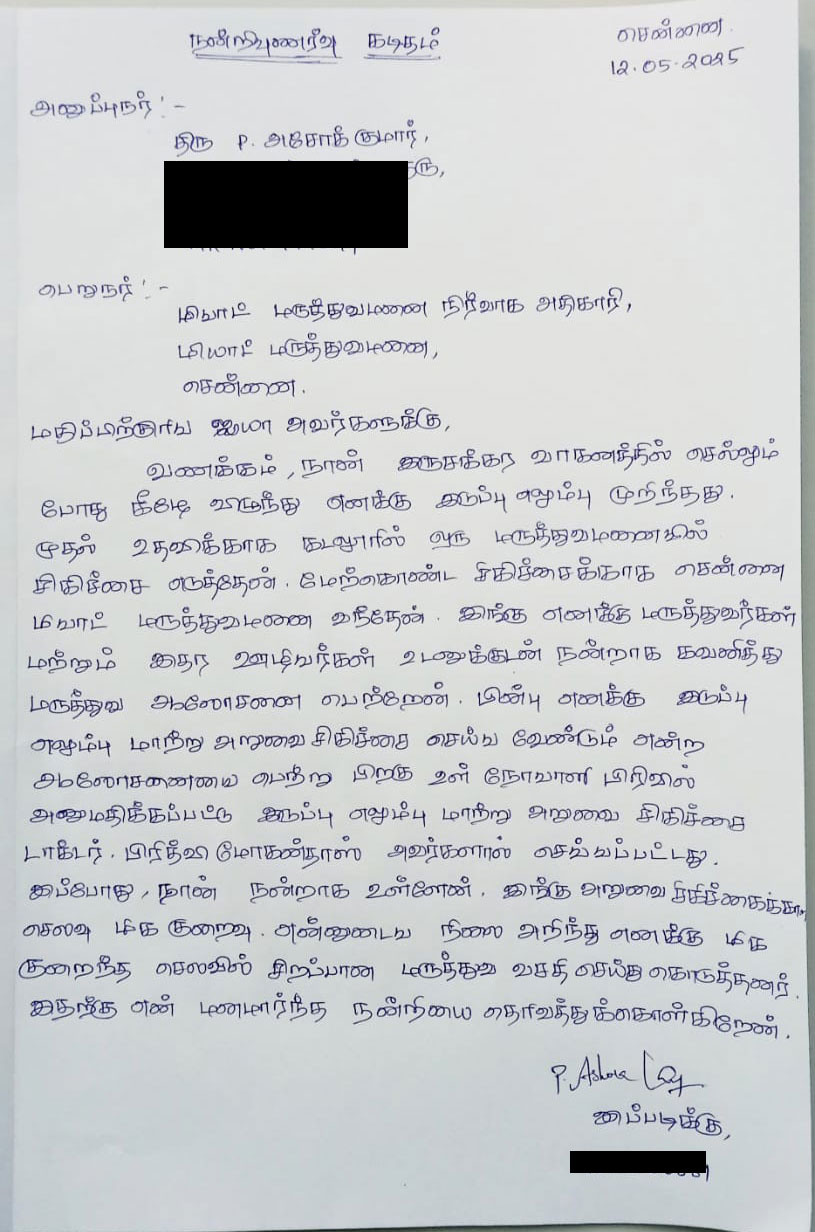 நன்றியுணர்வு கடிதம்
சென்னை.
12.05.2025
அனுப்புநர்:-
திரு P. அசோக்குமார்,
பெறுநர்:-
மியாட் மருத்துவமனை நிர்வாக அதிகாரி,
மியாட் மருத்துவமனை,
சென்னை.
மதிப்பிற்குரிய ஐயா அவர்களுக்கு,
வணக்கம், நான் இருசக்கர வாகனத்தில் செல்லும்
போது கீழே விழுந்து எனக்கு இடுப்பு எலும்பு முறிந்தது.
முதல் உதவிக்காக கடலூரில் ஒரு மருத்துவமனையில்
சிகிச்சை எடுத்தேன். மேற்கொண்ட சிகிச்சைக்காக சென்னை
மியாட் மருத்துவமனை வந்தேன். இங்கு எனக்கு மருத்துவர்கள்
மற்றும் இதர ஊழியர்கள் உடனுக்குடன் நன்றாக கவனித்து
மருத்துவ ஆலோசனை பெற்றேன். பின்பு எனக்கு இடுப்பு
எலும்பு மாற்று அறுவை சிகிச்சை செய்ய வேண்டும் என்ற
ஆலோசனையை பெற்று பிறகு உள் நோயாளி பிரிவில்
அனுமதிக்கப்பட்டு இடுப்பு எலும்பு மாற்று அறுவை சிகிச்சை
டாக்டர். பிரித்வி மோகன்தாஸ் அவர்களால் செய்யப்பட்டது.
இப்போது, நான் நன்றாக உள்ளேன். இங்கு அறுவை சிகிச்சைக்கான
செலவு மிக குறைவு. என்னுடைய நிலை அறிந்து எனக்கு மிக
குறைந்த செலவில் சிறப்பான மருத்துவ வசதி செய்து கொடுத்தனர்.
இதற்கு என் மனமார்ந்த நன்றியை தெரிவித்துக்கொள்கிறேன்.
P. Ashok
இப்படிக்கு,